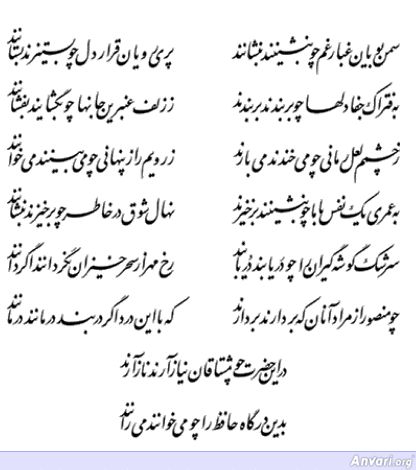 سمن بویان غبار غم چو بنشینند بنشانند پری رویان قرار دل چو بستیزند بستانند
به فتراک جفا دلها چو بربندند بربندند ز زلف عنبرین جانها چو بگشایند بفشانند
ز چشمم لعل رمانی چو می خندند می بارند ز رویم راز پنهانی چو می بینند می خوانند
به عمری یک نفس با ما چو بنشینند برخیزند نهال شوق در خاطر چو برخیزند بنشانند
سرشک گوشه گیران را چو دریابند در یابند رخ مهر از سحر خیزان نگردانند اگر دانند
چو منصور از مراد آنان که بردارند بر دارند که با این درد اگر در بند درمانند درمانند
در این حضرت چو مشتاقان نیاز آرند ناز آرند
بدین درگاه حافظ را چو می خوانند می رانند
Anvari.org